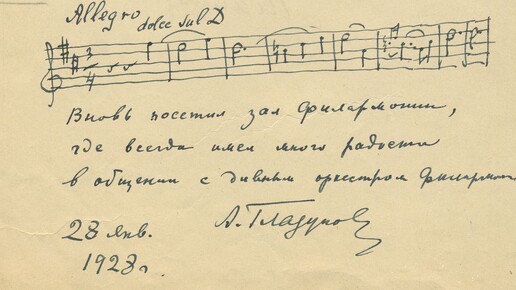 Allegro
dolce sul D
3
4
Вновь посетил зал филармонии,
где всегда имел много радости
в общении с дивным оркестром Филармон
А. Глазунов
28 янв.
1928 г.